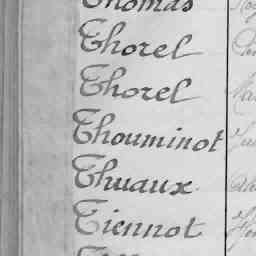 Thomas
Thorel
Thorel
Thouminot
Thuaux
Tiennot